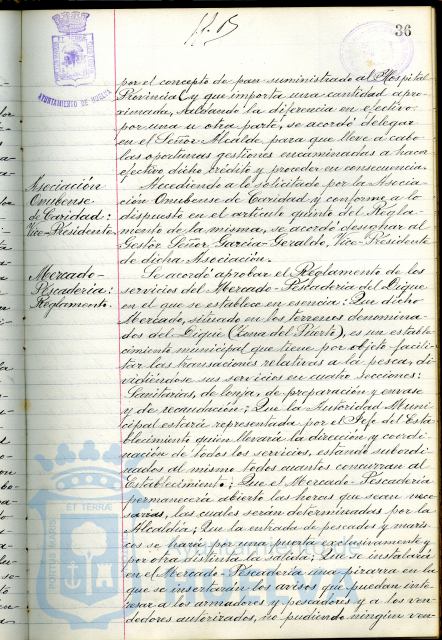 36
AYUNTAMIENTO DE HUELVA
por el concepto de pan suministrado al Hospital
Provincial, y que importa una cantidad apro-
ximada, saldando la diferencia en efectivo
por una u otra parte, se acordó delegar
en el Señor Alcalde, para que lleve a cabo
las oportunas gestiones encaminadas a hacer
efectivo dicho crédito y proceder en consecuencia.
Asociación
Onubense
de Caridad:
Vice-Presidente
Accediendo a lo solicitado por la Asocia-
ción Onubense de Caridad y conforme a lo
dispuesto en el artículo quinto del Regla-
mento de la misma, se acordó designar al
Gestor Señor Garcia-Geraldo, Vice-Presidente
de dicha Asociación.
Mercado-
Pescaderia:
Reglamento.
Se acordó aprobar el Reglamento de los
servicios del Mercado-Pescaderia del Dique
en el que se establece en esencia: Que dicho
Mercado, situado en los terrenos denomina-
dos del Dique (Zona del Puerto), es un estable-
cimiento municipal que tiene por objeto facili-
tar las transaciones relativas a la pesca, di-
vidiéndose sus servicios en cuatro secciones:
Sanitarias, de lonja, de preparación y envase
y de recaudación; Que la Autoridad Muni-
cipal estará representada por el Jefe del Esta-
blecimiento quien llevará la dirección y coordi-
nación de todos los servicios, estando subordi-
nados al mismo todos cuantos concurran al
Establecimiento; Que el Mercado-Pescaderia
permanecerá abierto las horas que sean nece-
sarias, las cuales serán determinadas por la
Alcaldía; Que la entrada de pescados y maris-
cos se hará por una puerta exclusivamente y
por otra distinta la salida; Que se instalará
en el Mercado-Pescaderia una pizarra en la
que se insertarán los avisos que puedan inte-
resar a los armadores y pescadores y a los ven-
dedores autorizados, no pudiendo ningún ven-
PORTUS MARIS ET TERRAE